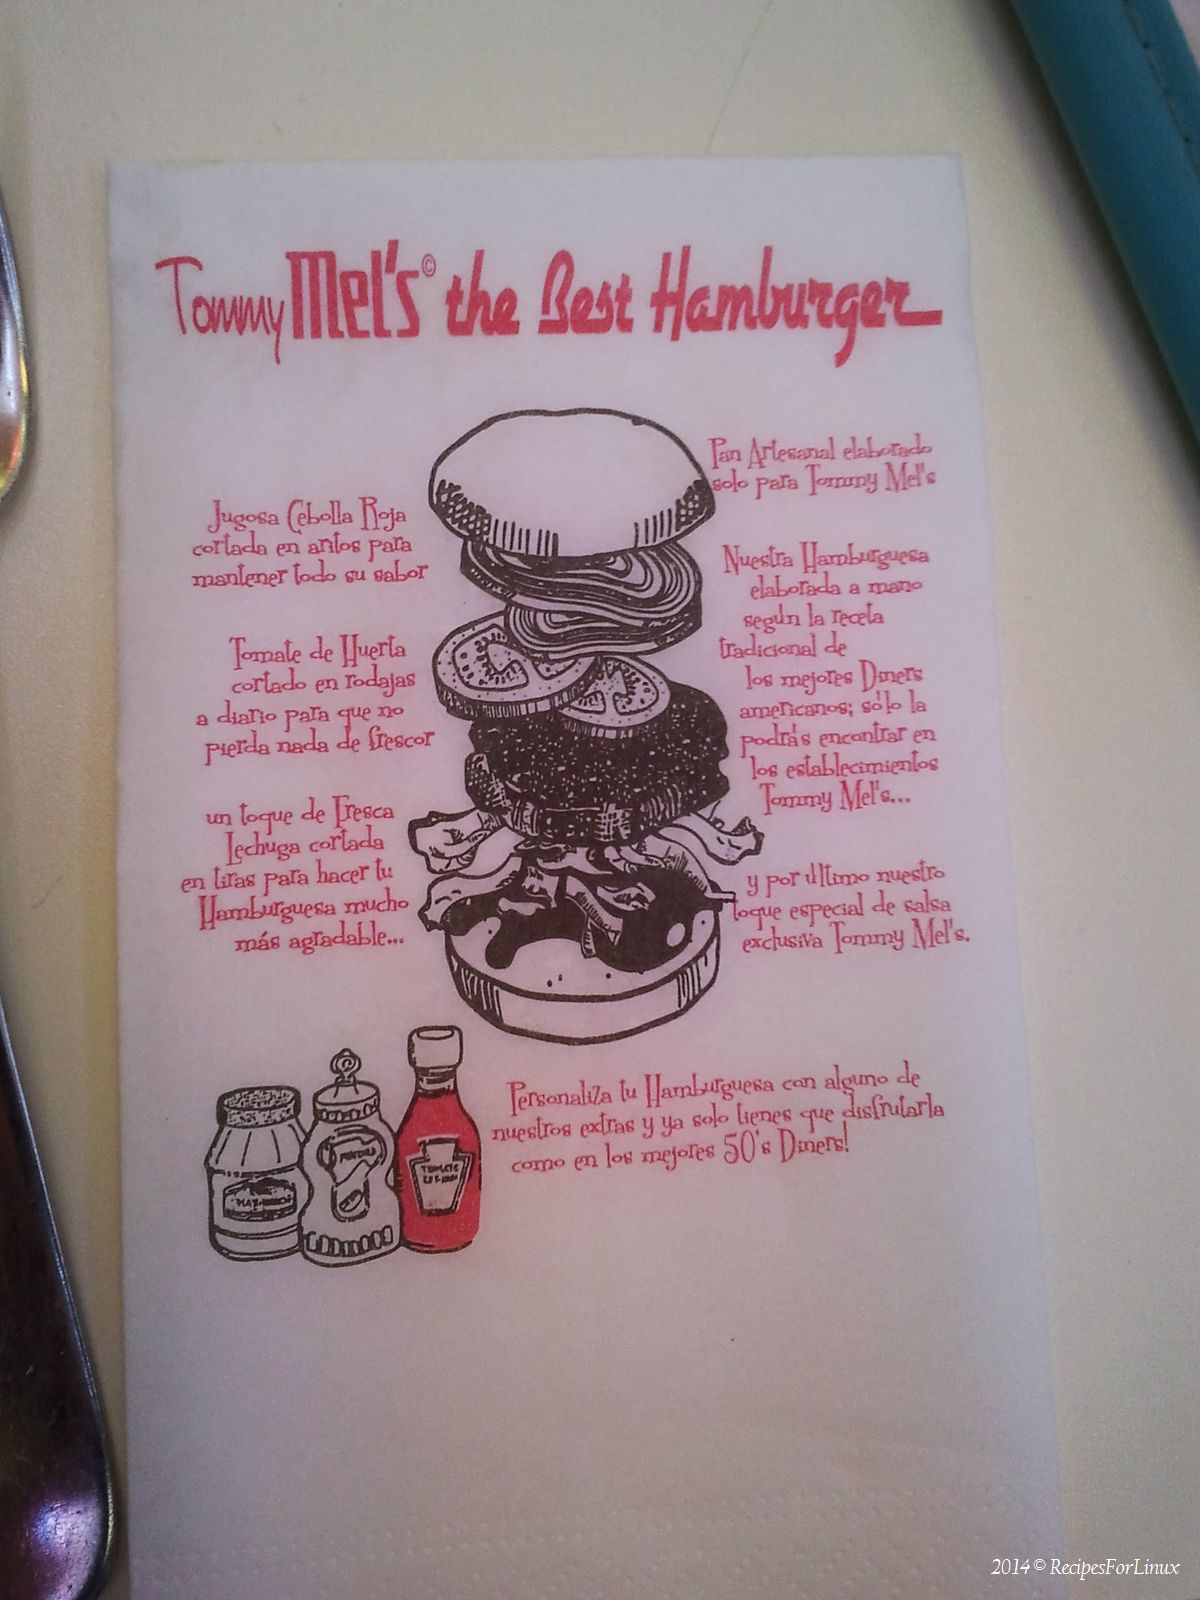 Tommy Mel's© the Best Hamburger
Pan Artesanal elaborado
solo para Tommy Mel's
Jugosa Cebolla Roja
cortada en aritos para
mantener todo su sabor
Nuestra Hamburguesa
elaborada a mano
según la receta
tradicional de
los mejores Diners
americanos; sólo la
podrás encontrar en
los establecimientos
Tommy Mel's...
Tomate de Huerta
cortado en rodajas
a diario para que no
pierda nada de frescor
un toque de Fresca
Lechuga cortada
en tiras para hacer tu
Hamburguesa mucho
más agradable...
y por último nuestro
toque especial de salsa
exclusiva Tommy Mel's.
Personaliza tu Hamburguesa con alguno de
nuestros extras y ya solo tienes que disfrutarla
como en los mejores 50's Diners!
TOMATE
2014 © RecipesForLinux